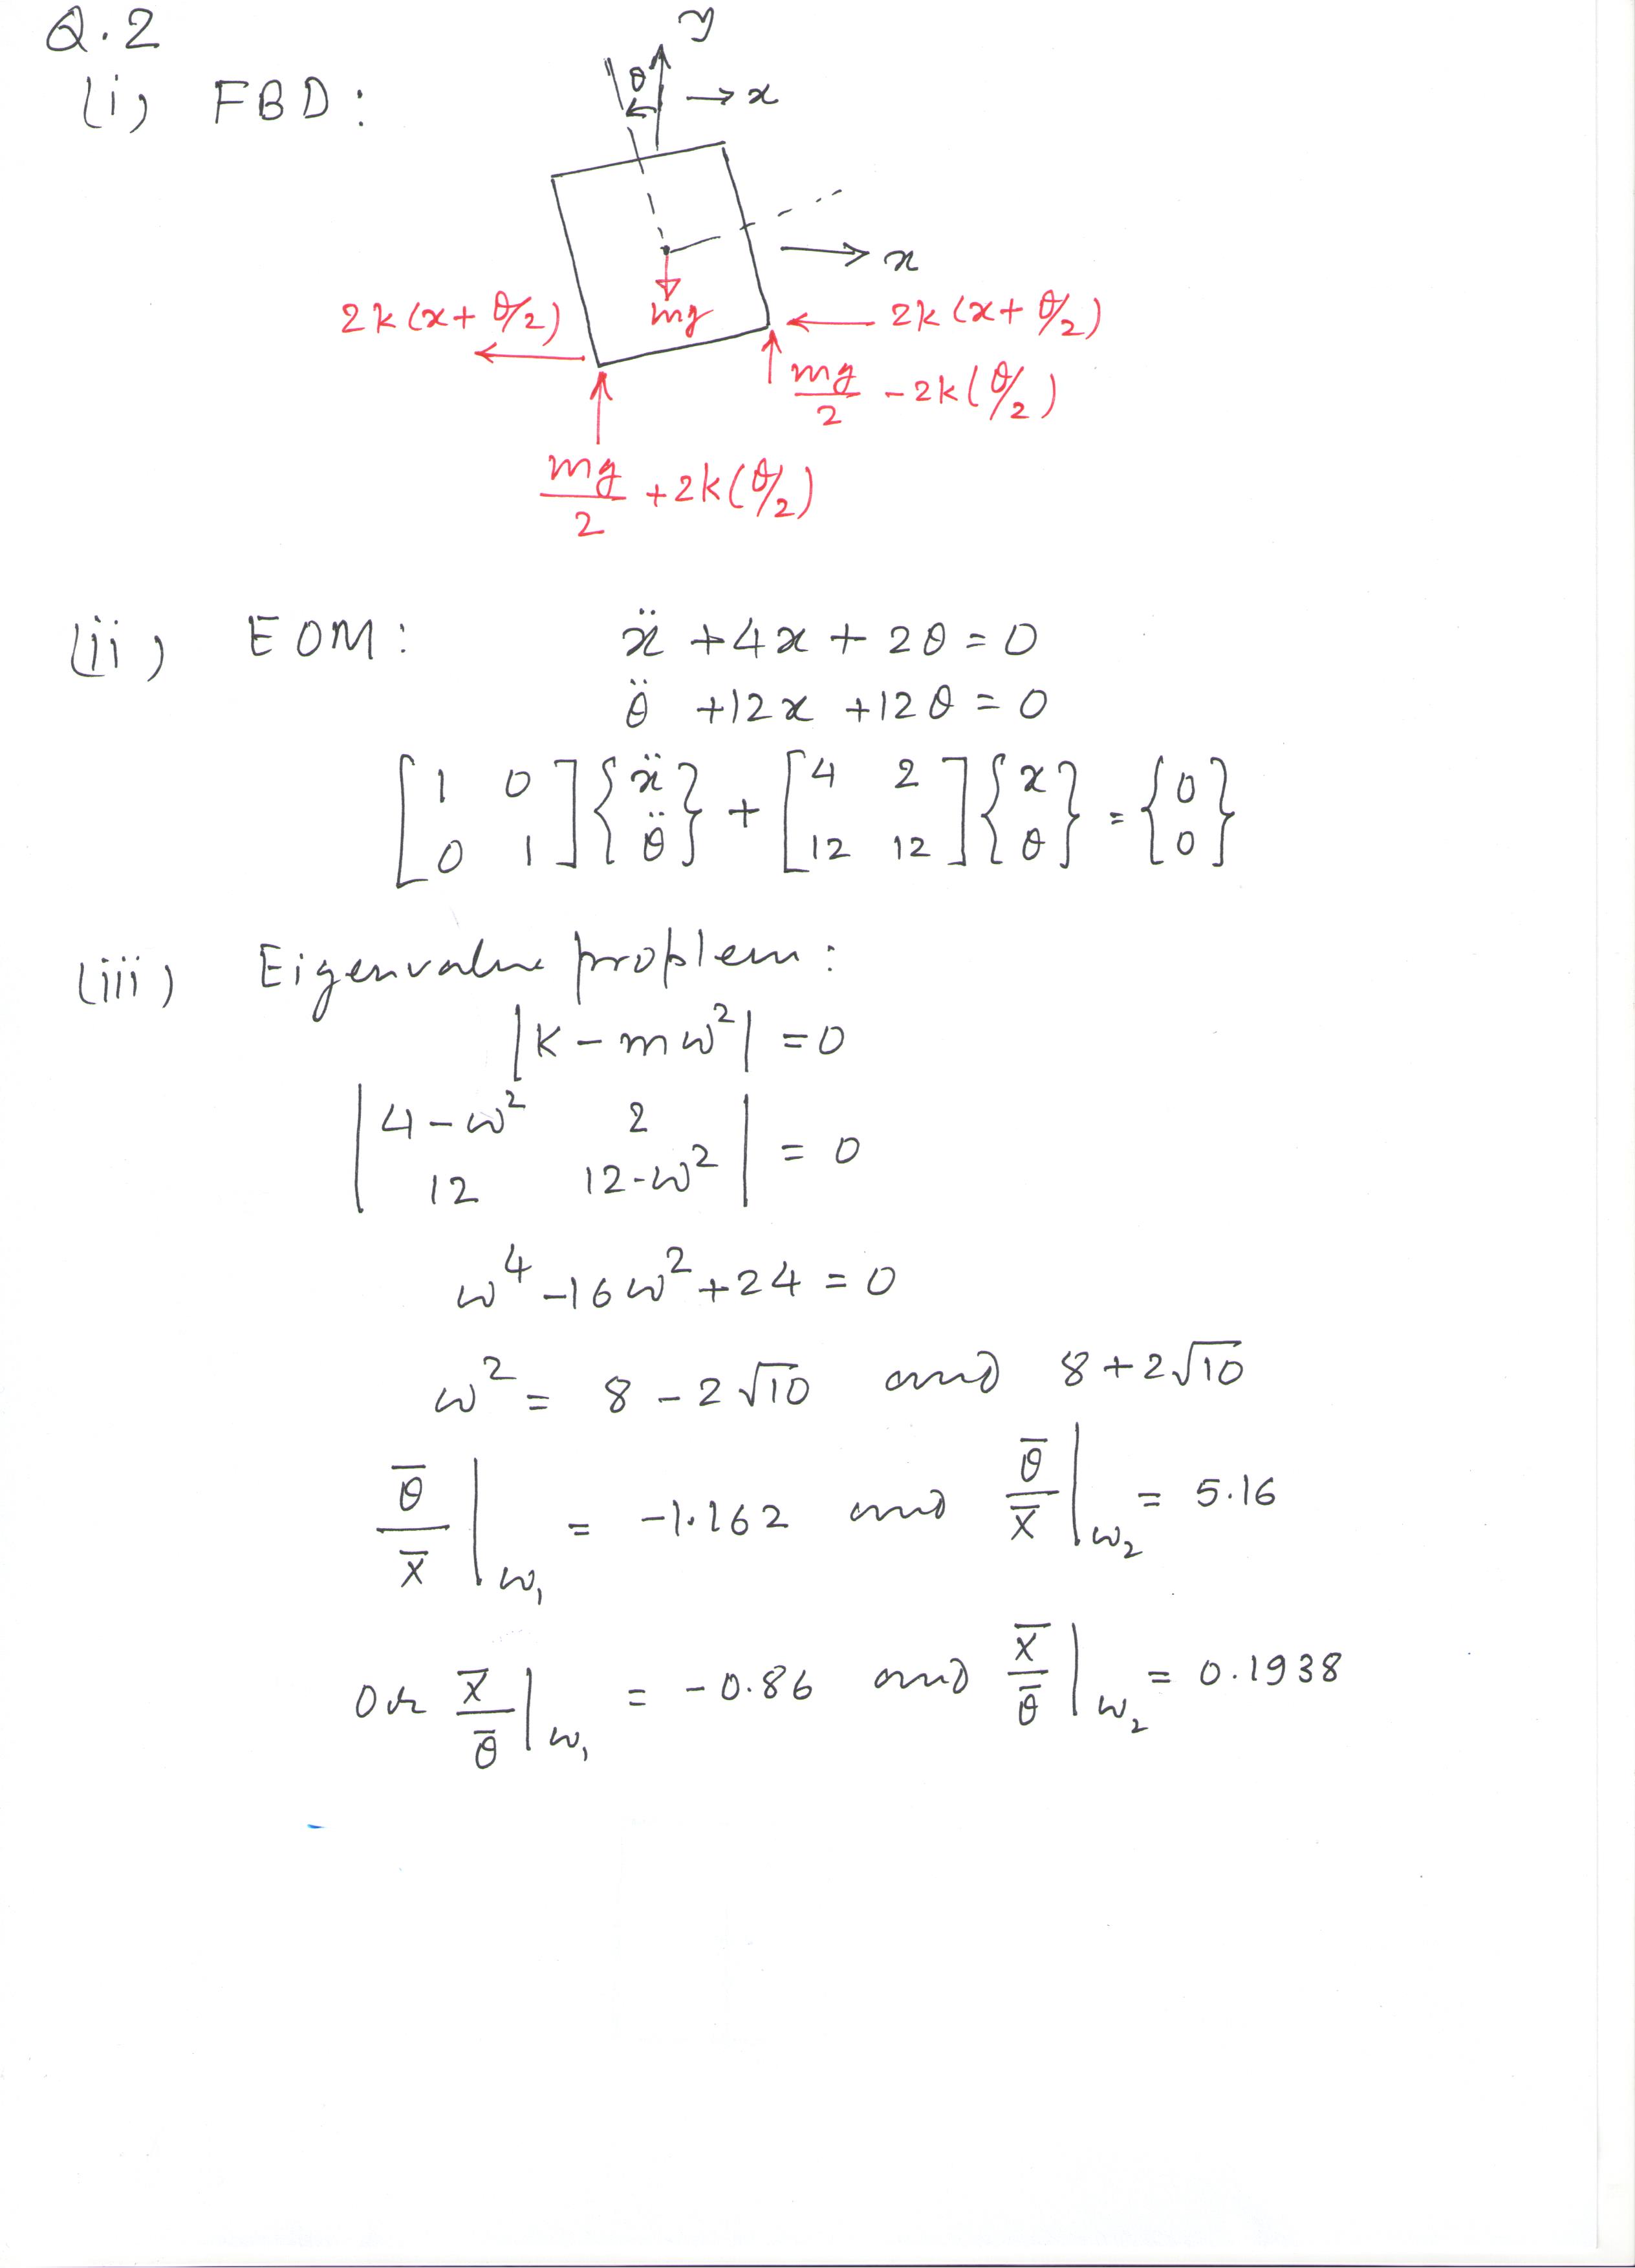 Q.2
(i) FBD:
y
θ
x
x
mg
2k(x+θ/2)
2k(x+θ/2)
mg/2 - 2k(θ/2)
mg/2 + 2k(θ/2)
(ii) EOM: ẍ + 4x + 2θ = 0
θ̈ + 12x + 12θ = 0
[1 0; 0 1]{ẍ; θ̈} + [4 2; 12 12]{x; θ} = {0; 0}
(iii) Eigenvalue problem:
|k - mω²| = 0
|4-ω² 2; 12 12-ω²| = 0
ω⁴ - 16ω² + 24 = 0
ω² = 8 - 2√10 and 8 + 2√10
θ̄/X̄|ω₁ = -1.162 and θ̄/X̄|ω₂ = 5.16
Or X̄/θ̄|ω₁ = -0.86 and X̄/θ̄|ω₂ = 0.1938